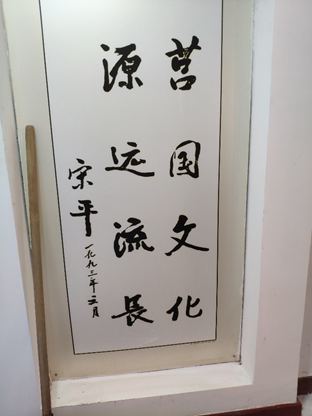 莒国文化
源远流長
宋平
一九九三年五月